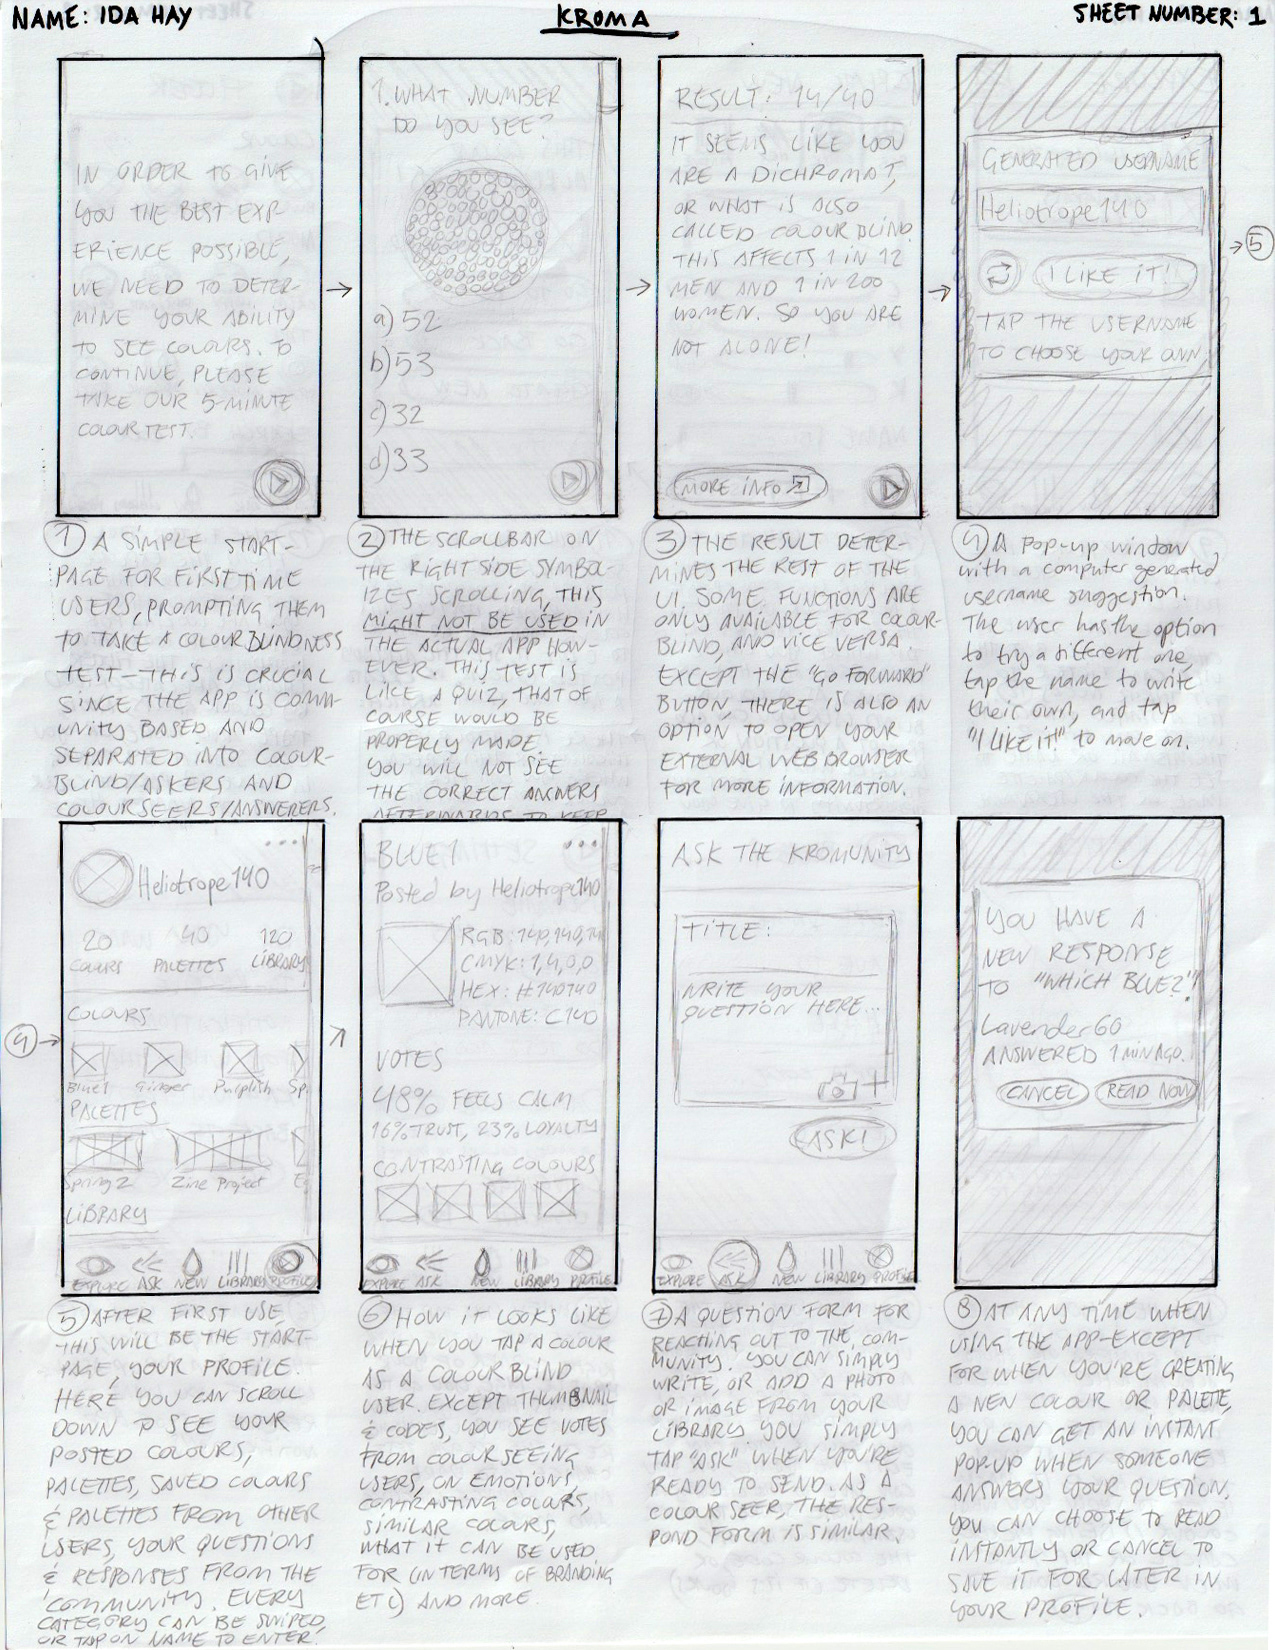 NAME: IDA HAY
KROMA
SHEET NUMBER: 1
IN ORDER TO GIVE
YOU THE BEST EXP-
ERIENCE POSSIBLE,
WE NEED TO DETER-
MINE YOUR ABILITY
TO SEE COLOURS. TO
CONTINUE, PLEASE
TAKE OUR 5-MINUTE
COLOUR TEST.
1. WHAT NUMBER
DO YOU SEE?
a) 52
b) 53
c) 32
d) 33
RESULT: 14/40
IT SEEMS LIKE YOU
ARE A DICHROMAT,
OR WHAT IS ALSO
CALLED COLOUR BLIND.
THIS AFFECTS 1 IN 12
MEN AND 1 IN 200
WOMEN. SO YOU ARE
NOT ALONE!
MORE INFO
GENERATED USERNAME
Heliotrope140
I LIKE IT!
TAP THE USERNAME
TO CHOOSE YOUR OWN.
→ 5
1 A SIMPLE START-
PAGE FOR FIRST TIME
USERS, PROMPTING THEM
TO TAKE A COLOUR BLINDNESS
TEST – THIS IS CRUCIAL
SINCE THE APP IS COMM-
UNITY BASED AND
SEPARATED INTO COLOUR-
BLIND/ASKERS AND
COLOURSEERS/ANSWERERS.
2 THE SCROLLBAR ON
THE RIGHT SIDE SYMBOL-
IZES SCROLLING, THIS
MIGHT NOT BE USED IN
THE ACTUAL APP HOW-
EVER. THIS TEST IS
LIKE A QUIZ, THAT OF
COURSE WOULD BE
PROPERLY MADE.
YOU WILL NOT SEE
THE CORRECT ANSWERS
AFTERWARDS TO KEEP
3 THE RESULT DETER-
MINES THE REST OF THE
UI. SOME FUNCTIONS ARE
ONLY AVAILABLE FOR COLOUR-
BLIND, AND VICE VERSA.
EXCEPT THE "GO FORWARD"
BUTTON, THERE IS ALSO AN
OPTION TO OPEN YOUR
EXTERNAL WEB BROWSER
FOR MORE INFORMATION.
4 A pop-up window
with a computer generated
username suggestion.
The user has the option
to try a different one,
tap the name to write
their own, and tap
"I LIKE IT!" to move on.
4 →
Heliotrope140
20 40 120
COLOURS PALETTES LIBRARY
COLOURS
Blue1 Ginger Purplish Sp
PALETTES
Spring2 Zine Project
LIBRARY
EXPLORE ASK NEW LIBRARY PROFILE
BLUE1
Posted by Heliotrope140
RGB: 140,140,14
CMYK: 1,4,0,0
HEX: #140140
PANTONE: C140
VOTES
48% FEELS CALM
16% TRUST, 23% LOYALTY
CONTRASTING COLOURS
EXPLORE ASK NEW LIBRARY PROFILE
ASK THE KROMUNITY
TITLE:
WRITE YOUR
QUESTION HERE...
ASK!
EXPLORE ASK NEW LIBRARY PROFILE
YOU HAVE A
NEW RESPONSE
TO "WHICH BLUE?"!
Lavender60
ANSWERED 1 MIN AGO.
CANCEL READ NOW
5 AFTER FIRST USE,
THIS WILL BE THE START-
PAGE, YOUR PROFILE.
HERE YOU CAN SCROLL
DOWN TO SEE YOUR
POSTED COLOURS,
PALETTES, SAVED COLOURS
& PALETTES FROM OTHER
USERS, YOUR QUESTIONS
& RESPONSES FROM THE
COMMUNITY. EVERY
CATEGORY CAN BE SWIPED,
OR TAP ON NAME TO ENTER.
6 HOW IT LOOKS LIKE
WHEN YOU TAP A COLOUR
AS A COLOUR BLIND
USER. EXCEPT THUMBNAIL
& CODES, YOU SEE VOTES
FROM COLOUR SEEING
USERS, ON EMOTIONS,
CONTRASTING COLOURS,
SIMILAR COLOURS,
WHAT IT CAN BE USED
FOR (IN TERMS OF BRANDING
ETC) AND MORE.
7 A QUESTION FORM FOR
REACHING OUT TO THE COM-
MUNITY. YOU CAN SIMPLY
WRITE, OR ADD A PHOTO
OR IMAGE FROM YOUR
LIBRARY. YOU SIMPLY
TAP "ASK" WHEN YOU'RE
READY TO SEND. AS A
COLOUR SEER, THE RES-
POND FORM IS SIMILAR.
8 AT ANY TIME WHEN
USING THE APP – EXCEPT
FOR WHEN YOU'RE CREATING
A NEW COLOUR OR PALETTE,
YOU CAN GET AN INSTANT
POP-UP WHEN SOMEONE
ANSWERS YOUR QUESTION.
YOU CAN CHOOSE TO READ
INSTANTLY OR CANCEL TO
SAVE IT FOR LATER IN
YOUR PROFILE.